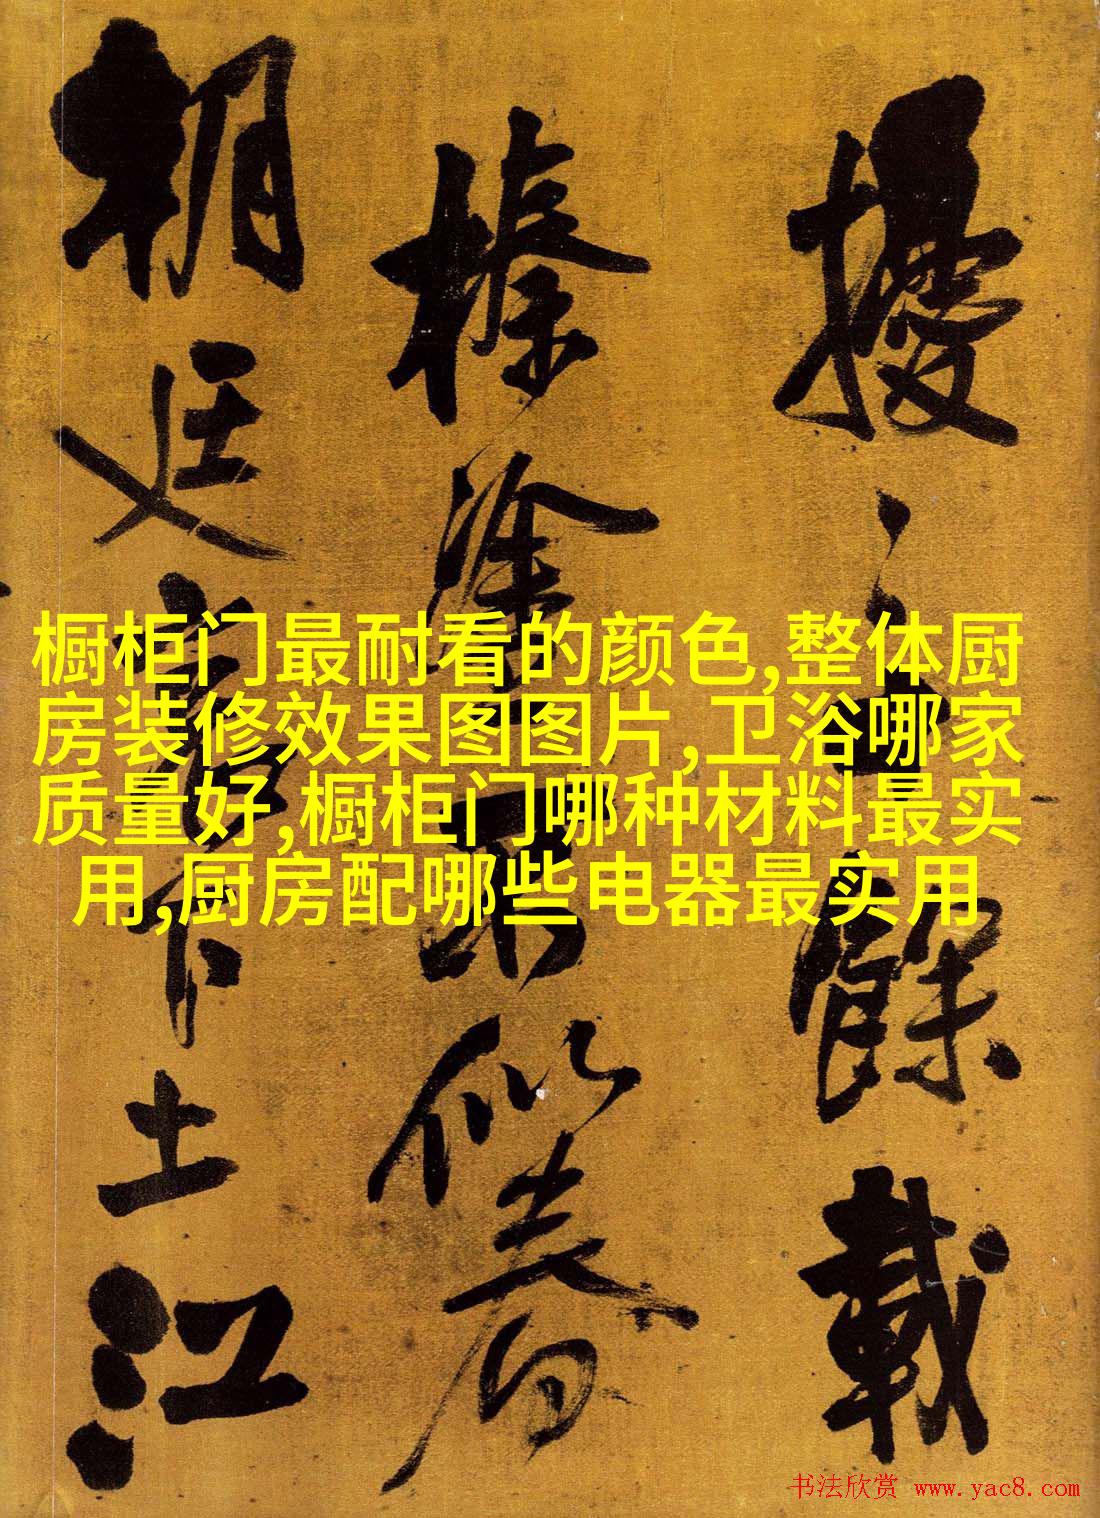 橱柜门最耐看的颜色,整体厨
房装修效果图图片,卫浴哪家
质量好,橱柜门哪种材料最实
用,厨房配哪些电器最实用
擾餘載
榛塗
朝廷下土江
书法欣赏 www.yac8.com